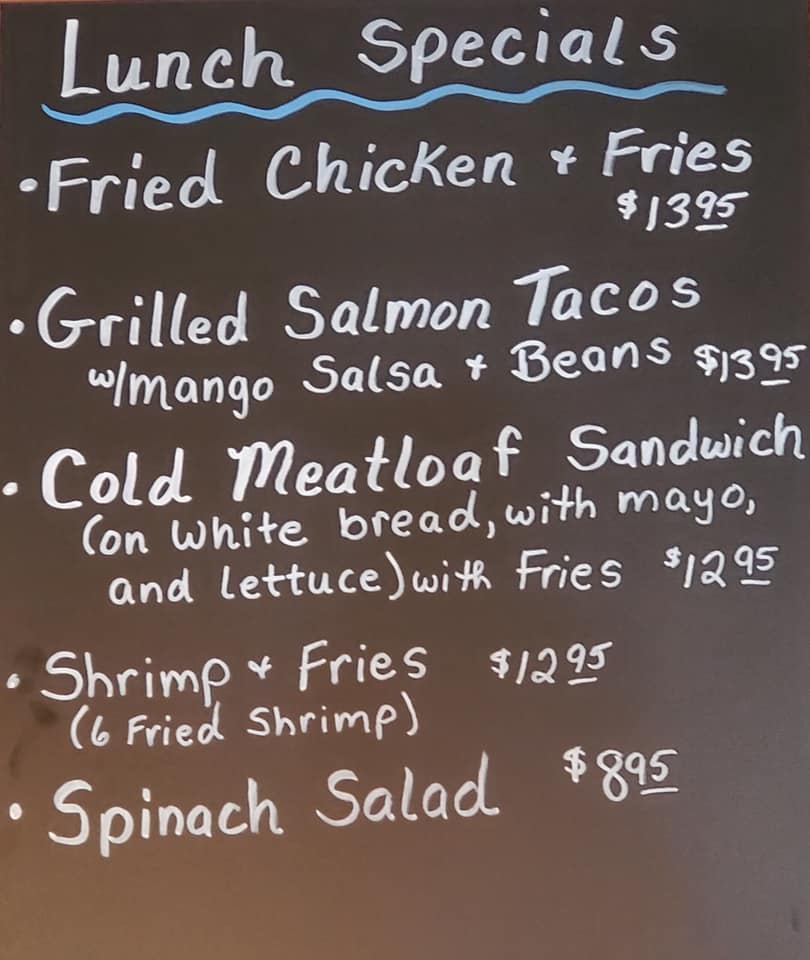 Lunch Specials
• Fried Chicken & Fries
$13 95
• Grilled Salmon Tacos
w/mango Salsa & Beans $13 95
• Cold Meatloaf Sandwich
(on white bread, with mayo,
and lettuce) with Fries $12 95
• Shrimp & Fries $12 95
(6 Fried Shrimp)
• Spinach Salad $8 95